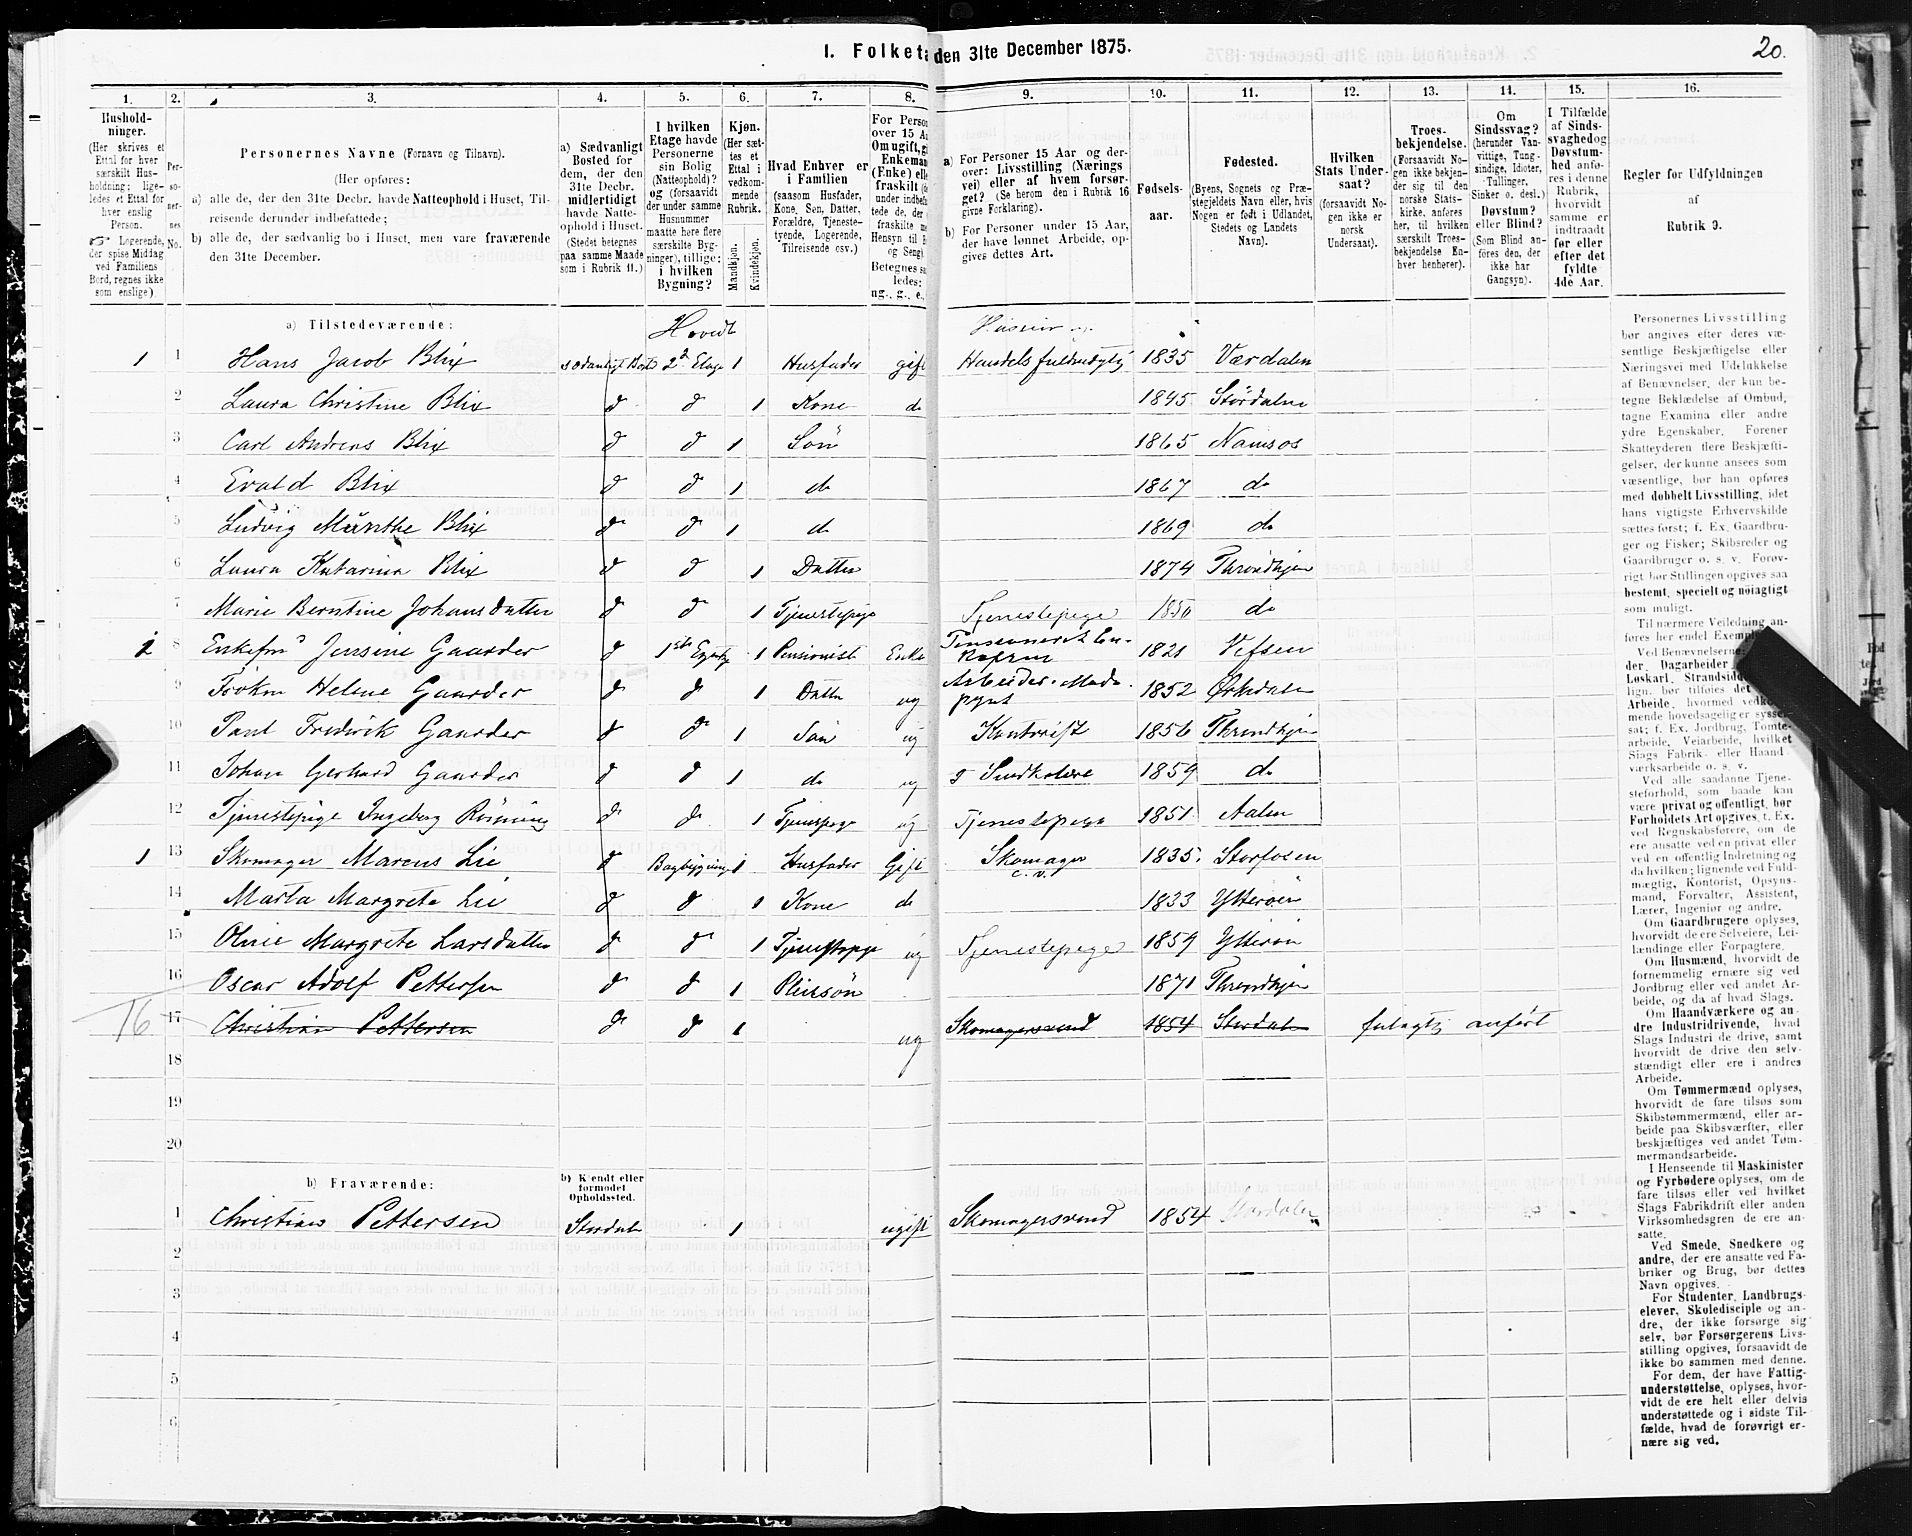 1. Folketæ den 31te December 1875.
20.
1. 2. 3. 4. 5. 6. 7. 8. 9. 10. 11. 12. 13. 14. 15. 16.
Hushold-
ninger.
(Her skrives et
Ettal for hver
særskilt Hus-
holdning; lige-
ledes et Ettal for
hver enslig
Person.
☞ Logerende,
der spise Middag
ved Familiens
Bord, regnes ikke
som enslige).
Per-
so-
ner-
nes
No.
Personernes Navne (Fornavn og Tilnavn).
(Her opføres:
a) alle de, der den 31te Decbr. havde Natteophold i Huset, Til-
reisende derunder indbefattede;
b) alle de, der sædvanlig bo i Huset, men vare fraværende
den 31te December.
a) Sædvanligt
Bosted for
dem, der den
31te Decbr.
midlertidigt
havde Natte-
ophold i Huset.
(Stedet betegnes
paa samme Maade
som i Rubrik 11.)
I hvilken
Etage havde
Personerne
sin Bolig
(Natteophold)?
og (forsaavidt
der under samme
Husnummer
maatte høre flere
særskilte Byg-
ninger), tillige:
i hvilken
Bygning?
Kjøn.
(Her sæt-
tes et
Ettal i
vedkom-
mende
Rubrik.
Mandkjøn.
Kvindekjøn.
Hvad Enhver er
i Familien
(saasom Husfader,
Kone, Søn, Datter,
Forældre, Tjeneste-
tyende, Logerende,
Tilreisende osv.)
For Person
over 15 Aa
Om ugift, g
Enkeman
(Enke) elle
fraskilt
Betegnes saa
ledes:
ug., g., e.,
a) For Personer 15 Aar og der-
over: Livsstilling (Nærings
vei) eller af hvem forsør-
get? (Se herom den i Rubrik 16
givne Forklaring).
b) For Personer under 15 Aar,
der have lønnet Arbeide, op-
gives dettes Art.
Fødsels-
aar.
Fødested.
(Byens, Sognets og Præ-
stegjeldets Navn eller, hvis
Nogen er født i Udlandet,
Stedets og Landets
Navn).
Hvilken
Stats Under-
saat?
(forsaavidt No-
gen ikke er
norsk
Undersaat).
Troes-
bekjendelse.
(Forsaavidt No-
gen ikke bekjen-
der sig til den
norske Stats-
kirke, anføres
her, til hvilken
særskilt Troes-
bekjendelse En-
hver henhører).
Om
Sindssvag?
(herunder Van-
vittige, Tung-
sindige, Idioter,
Tullinger,
Sinker o. desl.)
Døvstum?
eller Blind?
(Som Blind an-
føres den, der
ikke har
Gangsyn).
I Tilfælde
af Sinds-
svaghed og
Døvstum-
hed anfø-
res i denne
Rubrik,
hvorvidt
samme er
indtraadt
før eller
efter det
fyldte
4de Aar.
Regler for Udfyldningen
af
Rubrik 9.
a) Tilstedeværende:
Hovedt
1 1 Hans Jacob Blix sædvanligt Bosted 2d Etage 1 Husfader gift Handelsfuldmægtig 1835 Værdalen
2 Laura Christine Blix d d 1 Kone do 1845 Stördalen
3 Carl Andreas Blix d d 1 Sön 1865 Namsos
4 Evald Blix d d 1 do 1867 do
5 Ludvig Münthe Blix d d 1 do 1869 do
6 Laura Katarina Blix d d 1 Datter 1874 Throndhjem
7 Marie Berntine Johansdatter d d 1 Tjenestepige Tjenestepige 1850 do
2 8 Enkefru Jensine Gaarder d 1ste Etage 1 Pensionist Enke Pensioneret En-
kefrue 1821 Vefsen
9 Helene Gaarder d d 1 Datter ug Arbeider Made-
pynt 1852 Örkedalen
10 Paul Fredrik Gaarder d d 1 Sön ug Kontorist 1856 Throndhjem
11 Johan Gerhard Gaarder d d 1 do ug 1859 do
12 Tjenestepige Ingeborg Rönning d d 1 Tjenstpige ug Tjenestepige 1851 Aalen
1 13 Skomager Marcus Lie d Bagbygning 1 Husfader Gift Skomager 1835 Storfosen
14 Marta Margrete Lie d d 1 Kone do 1833 Ytteröen
15 Oline Margrete Larsdatter d d 1 Tjenestepige ug Tjenestepige 1859 Ytterön
16 Oscar Adolf Pettersen d d 1 Pleiesön 1871 Throndhjem
16 17 Christian Pettersen d d 1 ug Skomagersvend 1854 Stordalen feilagtig anfört
18
19
20
b) Fraværende:
b) Kjendt eller
formodet
Opholdssted.
1 Christian Pettersen Stordalen 1 ugift Skomagersvend 1854 Stordalen
2
3
4
5
6
Personernes Livsstilling
bør angives efter deres væ-
sentlige Beskjæftigelse eller
Næringsvei med Udelukkelse
af Benævnelser, der kun be-
tegne Beklædelse af Ombud,
tagne Examina eller andre
ydre Egenskaber. Forener
Skatteyderen flere Beskjæfti-
gelser, der kunne ansees som
væsentlige, bør han opføres
med dobbelt Livsstilling, idet
hans vigtigste Erhvervskilde
sættes først; f. Ex. Gaardbru-
ger og Fisker; Skibsreder og
Gaardbruger o. s. v. Forøv-
rigt bør Stillingen opgives saa
bestemt, specielt og nøiagtigt
som muligt.
Til nærmere Veiledning an-
føres her endel Exemp
Ved Benævnelserne:
der, Dagarbeider
Løskarl, Strandsidd
lign. bør tilføies det
Arbeide, hvormed vedko
mende hovedsagelig er syssel-
sat; f. Ex. Jordbrug, Tomte-
arbeide, Veiarbeide, hvilket
Slags Fabrik- eller Haand-
værksarbeide o. s. v.
Ved alle saadanne Tjene-
steforhold, som baade kan
være privat og offentligt, bør
Forholdets Art opgives, f. Ex.
ved Regnskabsførere, om de
ere ansatte ved en privat eller
ved en offentlig Indretning og
da hvilken; lignende ved Fuld-
mægtig, Kontorist, Opsyns-
mand, Forvalter, Assistent,
Lærer, Ingeniør og andre.
Om Gaardbrugere oplyses,
hvorvidt de ere Selveiere, Lei-
lændinge eller Forpagtere.
Om Husmænd, hvorvidt de
fornemmelig ernære sig ved
Jordbrug eller ved andet Ar-
beide, og da af hvad Slags.
Om Haandværkere og an-
dre Industridrivende, hvad
Slags Industri de drive, samt
hvorvidt de drive den selv-
stændigt eller ere i andres
Arbeide.
Om Tømmermænd oplyses,
hvorvidt de fare tilsøs som
Skibstømmermænd, eller ar-
beide paa Skibsværfter, eller
beskjæftiges ved andet Tøm-
mermandsarbeide.
I Henseende til Maskinister
og Fyrbødere oplyses, om de
fare tilsøs eller ved hvilket
Slags Fabrikdrift eller anden
Virksomhedsgren de ere an-
satte.
Ved Smede, Snedkere og
andre, der ere ansatte ved Fa-
briker og Brug, bør dettes
Navn opgives.
For Studenter, Landbrugs-
elever, Skoledisciple og an-
dre, der ikke forsørge sig
selv, bør Forsørgerens Livs-
stilling opgives, forsaavidt de
ikke bo sammen med denne.
For dem, der have Fattig-
understøttelse, oplyses, hvor-
vidt de ere helt eller delvis
understøttede og i sidste Til-
fælde, hvad de forøvrigt er-
nære sig ved.